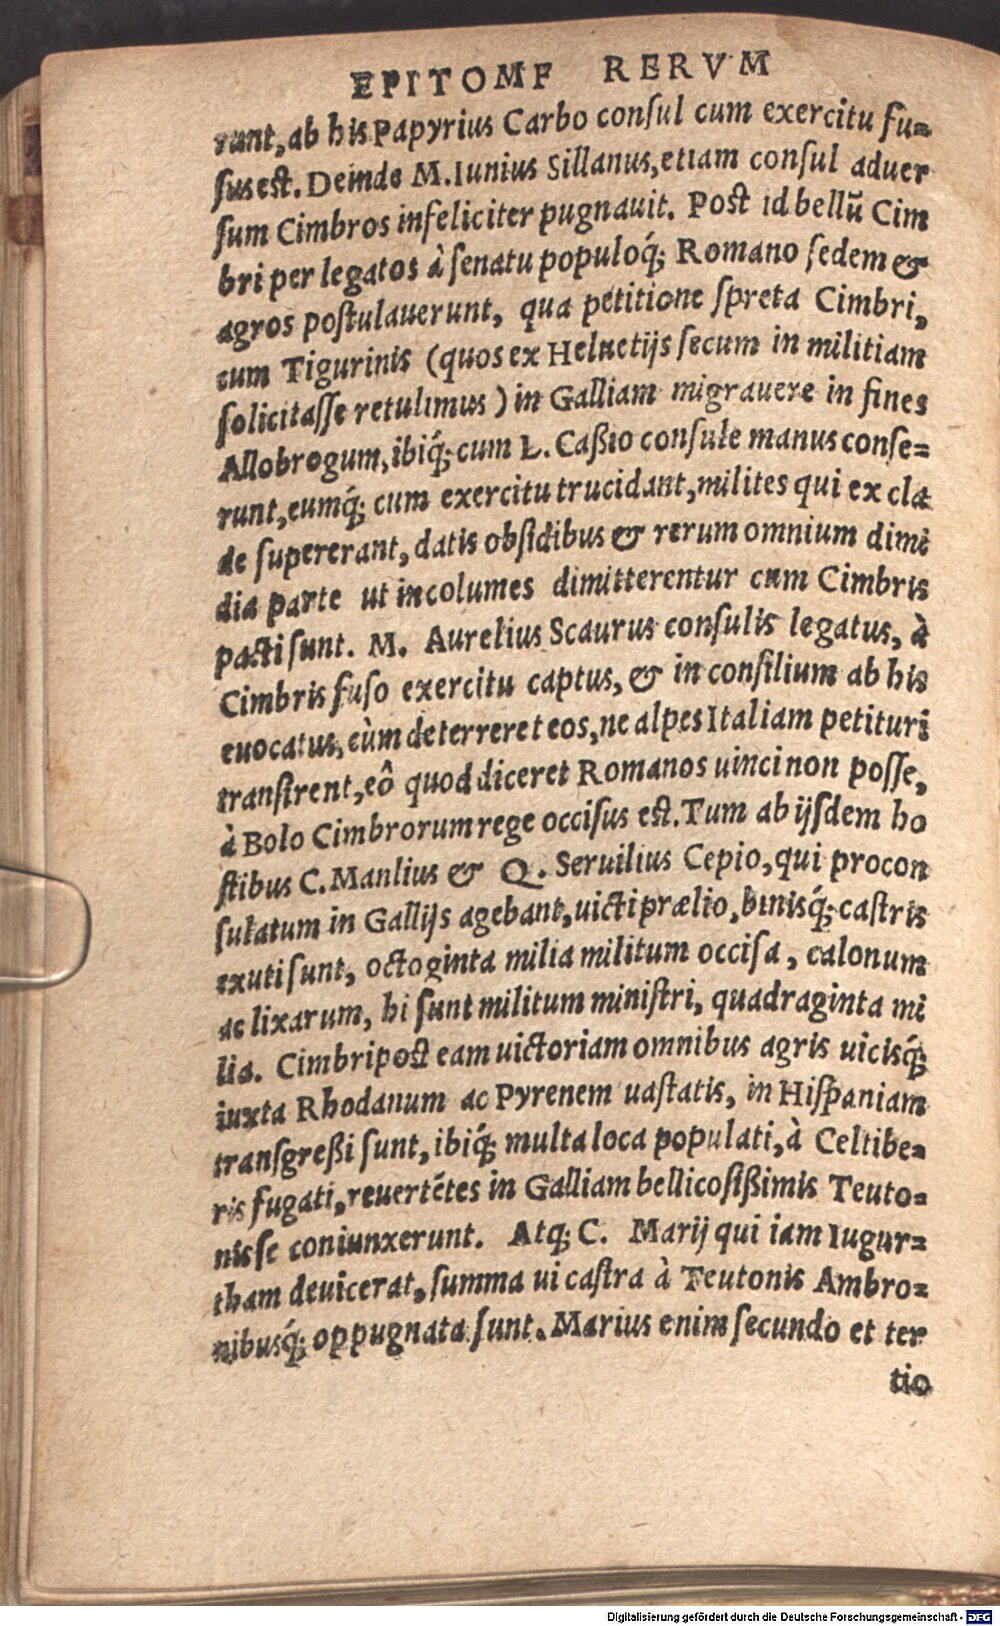 EPITOME RERVM
runt, ab his Papyrius Carbo conſul cum exercitu fu=
ſus est. Deinde M. Iunius Sillanus, etiam conſul aduer
ſum Cimbros infeliciter pugnauit. Post id bellũ Cim
bri per legatos à ſenatu populoq́; Romano ſedem &
agros poſtulauerunt, qua petitione ſpreta Cimbri,
cum Tigurinis (quos ex Heluetijs ſecum in militiam
ſolicitaſſe retulimus) in Galliam migrauere in fines
Allobrogum, ibiq́; cum L. Caßio conſule manus conſe=
runt, eumq́; cum exercitu trucidant, milites qui ex cla
de ſupererant, datis obſidibus & rerum omnium dimi
dia parte ut incolumes dimitterentur cum Cimbris
pacti ſunt. M. Aurelius Scaurus conſulis legatus, à
Cimbris fuſo exercitu captus, & in conſilium ab his
euocatus, cùm deterreret eos, ne alpes Italiam petituri
tranſirent, eô quod diceret Romanos uinci non poſſe,
à Bolo Cimbrorum rege occiſus est. Tum ab ijſdem ho
ſtibus C. Manlius & Q. Seruilius Cepio, qui procon
ſulatum in Gallijs agebant, uicti prælio, binisq́; caſtris
exuti ſunt, octoginta milia militum occiſa, calonum
ac lixarum, hi ſunt militum miniſtri, quadraginta mi
lia. Cimbri post eam uictoriam omnibus agris uicisq́;
iuxta Rhodanum ac Pyrenem uaſtatis, in Hiſpaniam
tranſgreßi ſunt, ibiq́; multa loca populati, à Celtibe=
ris fugati, reuertẽtes in Galliam bellicoſißimis Teuto=
nis ſe coniunxerunt. Atq; C. Marij qui iam Iugur=
tham deuicerat, ſumma ui caſtra à Teutonis Ambro=
nibusq́; oppugnata ſunt. Marius enim ſecundo et ter
tio
Digitalisierung gefördert durch die Deutsche Forschungsgemeinschaft - DFG